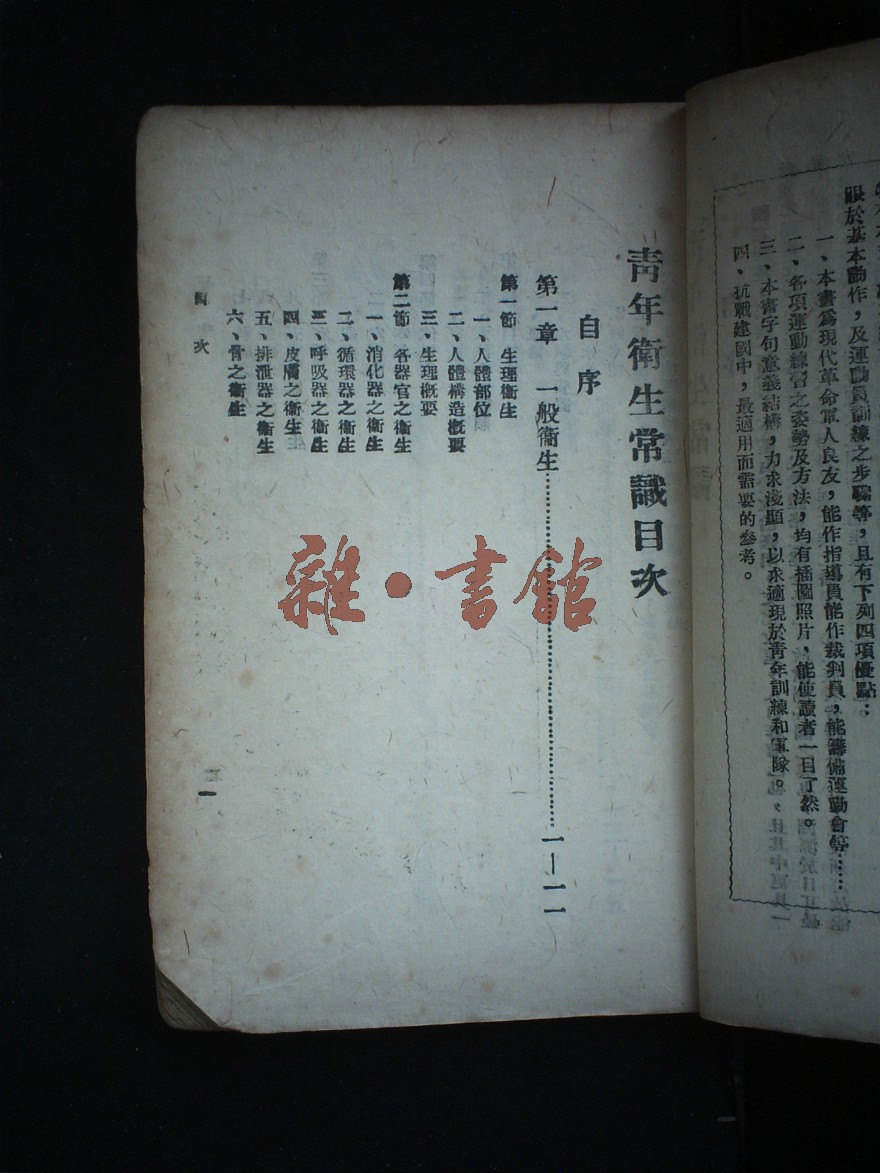 眼於基本動作，及運動員訓練之步驟等，且有下列四項優點：
一、本書爲現代革命軍人良友，能作指導員能作裁判員，能籌備運動會等……
二、各項運動練習之姿勢及方法，均有插圖照片，能使讀者一目了然。
三、本書字句意義結構，力求淺顯，以求適現於青年訓練和軍隊。
四、抗戰建國中，最適用而需要的參考。
青年衛生常識目次
自序
第一章　一般衛生……………………一—一一
第一節　生理衛生
一、人體部位
二、人體構造概要
三、生理概要
第二節　各器官之衛生
一、消化器之衛生
二、循環器之衛生
三、呼吸器之衛生
四、皮膚之衛生
五、排泄器之衛生
六、骨之衛生
目次
一
雜・書館